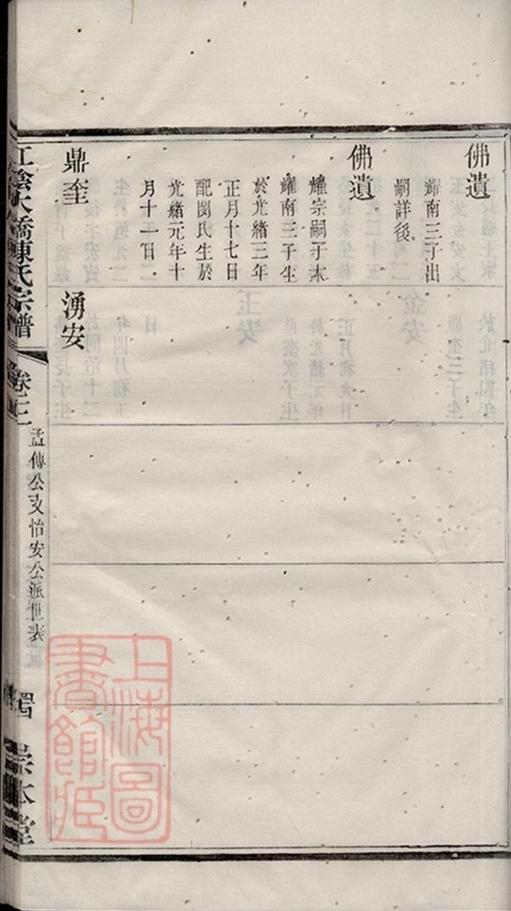 佛遺
耀南三子出
嗣詳後
佛遺
耀宗嗣子本
耀南三子生
於光緒三年
正月十七日
配閔氏生於
光緒元年十
月十一日
鼎奎
湧安
江陰大橋陳氏宗譜
孟傳公支怡安公派世表
崇本堂
上海圖書館藏